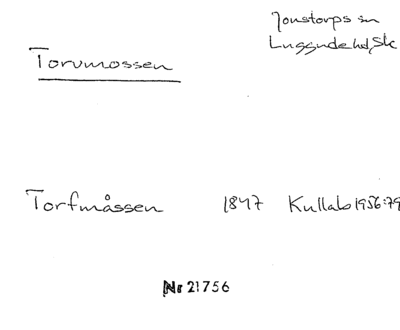 Jonstorps sn
Luggude hd, Sk
Torvmossen
Torfmåssen 1847 Kullab 1956:79
Nr 21756